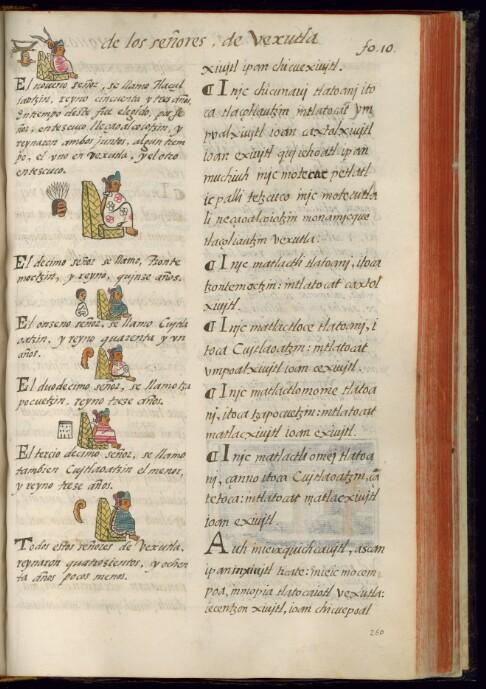 de los señores, de Vexutla
fo. 10.
El noueno señor, se llamo Tlacol
iautzin, reyno cincuenta y tres años.
En tiempo deste fue elegido, por se
ñor, en tescuco Neçaoalcoiotzin, y
reynaron ambos juntos, algun tiem
po, el vno en Vexutla, y el otro
en tescuco.
El decimo señor se llamo, Tzonte
moctzin, y reyno, quinze años.
El onseno señor, se llamo Cuitla
oatzin, y reyno quarenta y vn
años.
El duodecimo señor, se llamo tza
pocuetzin, reyno treze años.
El tercio decimo señor, se llamo
tambien Cujtlaoatzin el menor,
y reyno treze años.
Todos estos señores de Vexutla,
reynaron quatrocientos, y ochen
ta años pocos menos.
xiujtl ipan chicuexiujtl.
¶ Injc chicunauj tlatoanj ito
ca tlaçoliautzin intlatocat ym
poalxiujtl ioan caxtolxiujtl
ioan exiujtl
muchiuh injc motecac petlatl
icpalli tetzcuco injc motecutla
li neçaoalcoiotzin
tlaçoliautzin vexutla:
¶ Injc matlactli tlatoanj, itoca
tzontemoctzin: intlatocat caxtol
xiujtl.
¶ Injc matlactloce tlatoanj, i
toca Cuitlaoatzin: intlatocat
vmpoalxiujtl ioan cexiujtl.
¶ Injc matlactlomome tlatoa
nj, itoca tzapocuetzin: intlatocat
matlacxiujtl ioan exiujtl.
¶ Injc matlactli omej tlatoa
nj, çanno itoca Cujtlaoatzin,
tetoca: intlatocat matlacxiujtl
ioan exiujtl.
Auh in ixquichcaujtl, ascan
ipan inxiujtl
poa, intlatocaiotl vexutla:
cecentzon xiujtl, ioan chicuepoal
260